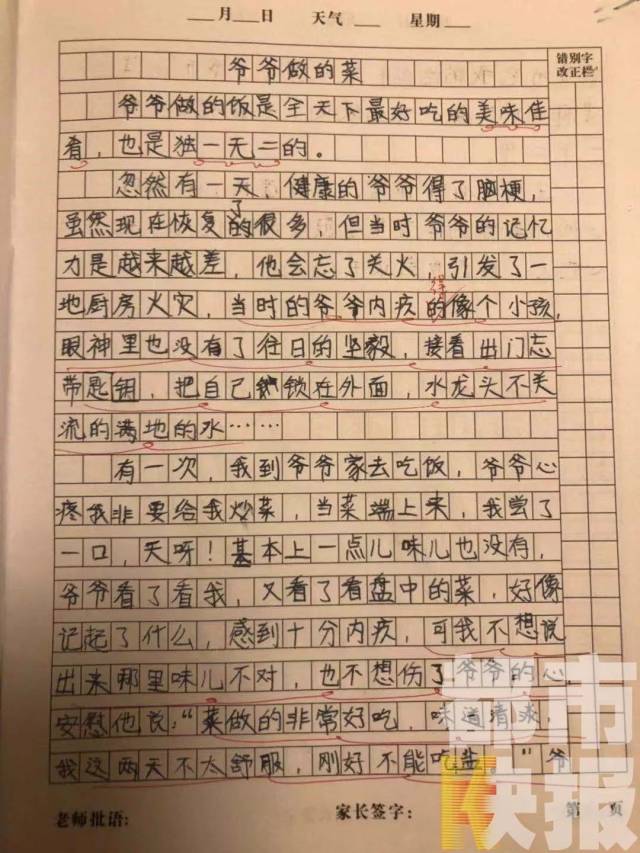 月 日 天气 星期
错别字
改正栏
爷爷做的菜
爷爷做的饭是全天下最好吃的美味佳
肴,也是独一无二的。
忽然有一天,健康的爷爷得了脑梗,
虽然现在恢复的很多,但当时爷爷的记忆
了
力是越来越差,他会忘了关火,引发了一
地厨房火灾,当时的爷爷内疚的像个小孩,
得
眼神里也没有了往日的坚毅,接着出门忘
带匙钥,把自己锁在外面,水龙头不关
流的满地的水……
有一次,我到爷爷家去吃饭,爷爷心
疼我非要给我炒菜,当菜端上来,我尝了
一口,天呀!基本上一点儿味儿也没有,
爷爷看了看我,又看了看盘中的菜,好像
记起了什么,感到十分内疚,可我不想说
出来那里味儿不对,也不想伤了爷爷的心,
安慰他说:“菜做的非常好吃,味道清淡,
我这两天不太舒服,刚好不能吃盐。”爷
老师批语: 家长签字: 第 页
都市
快报